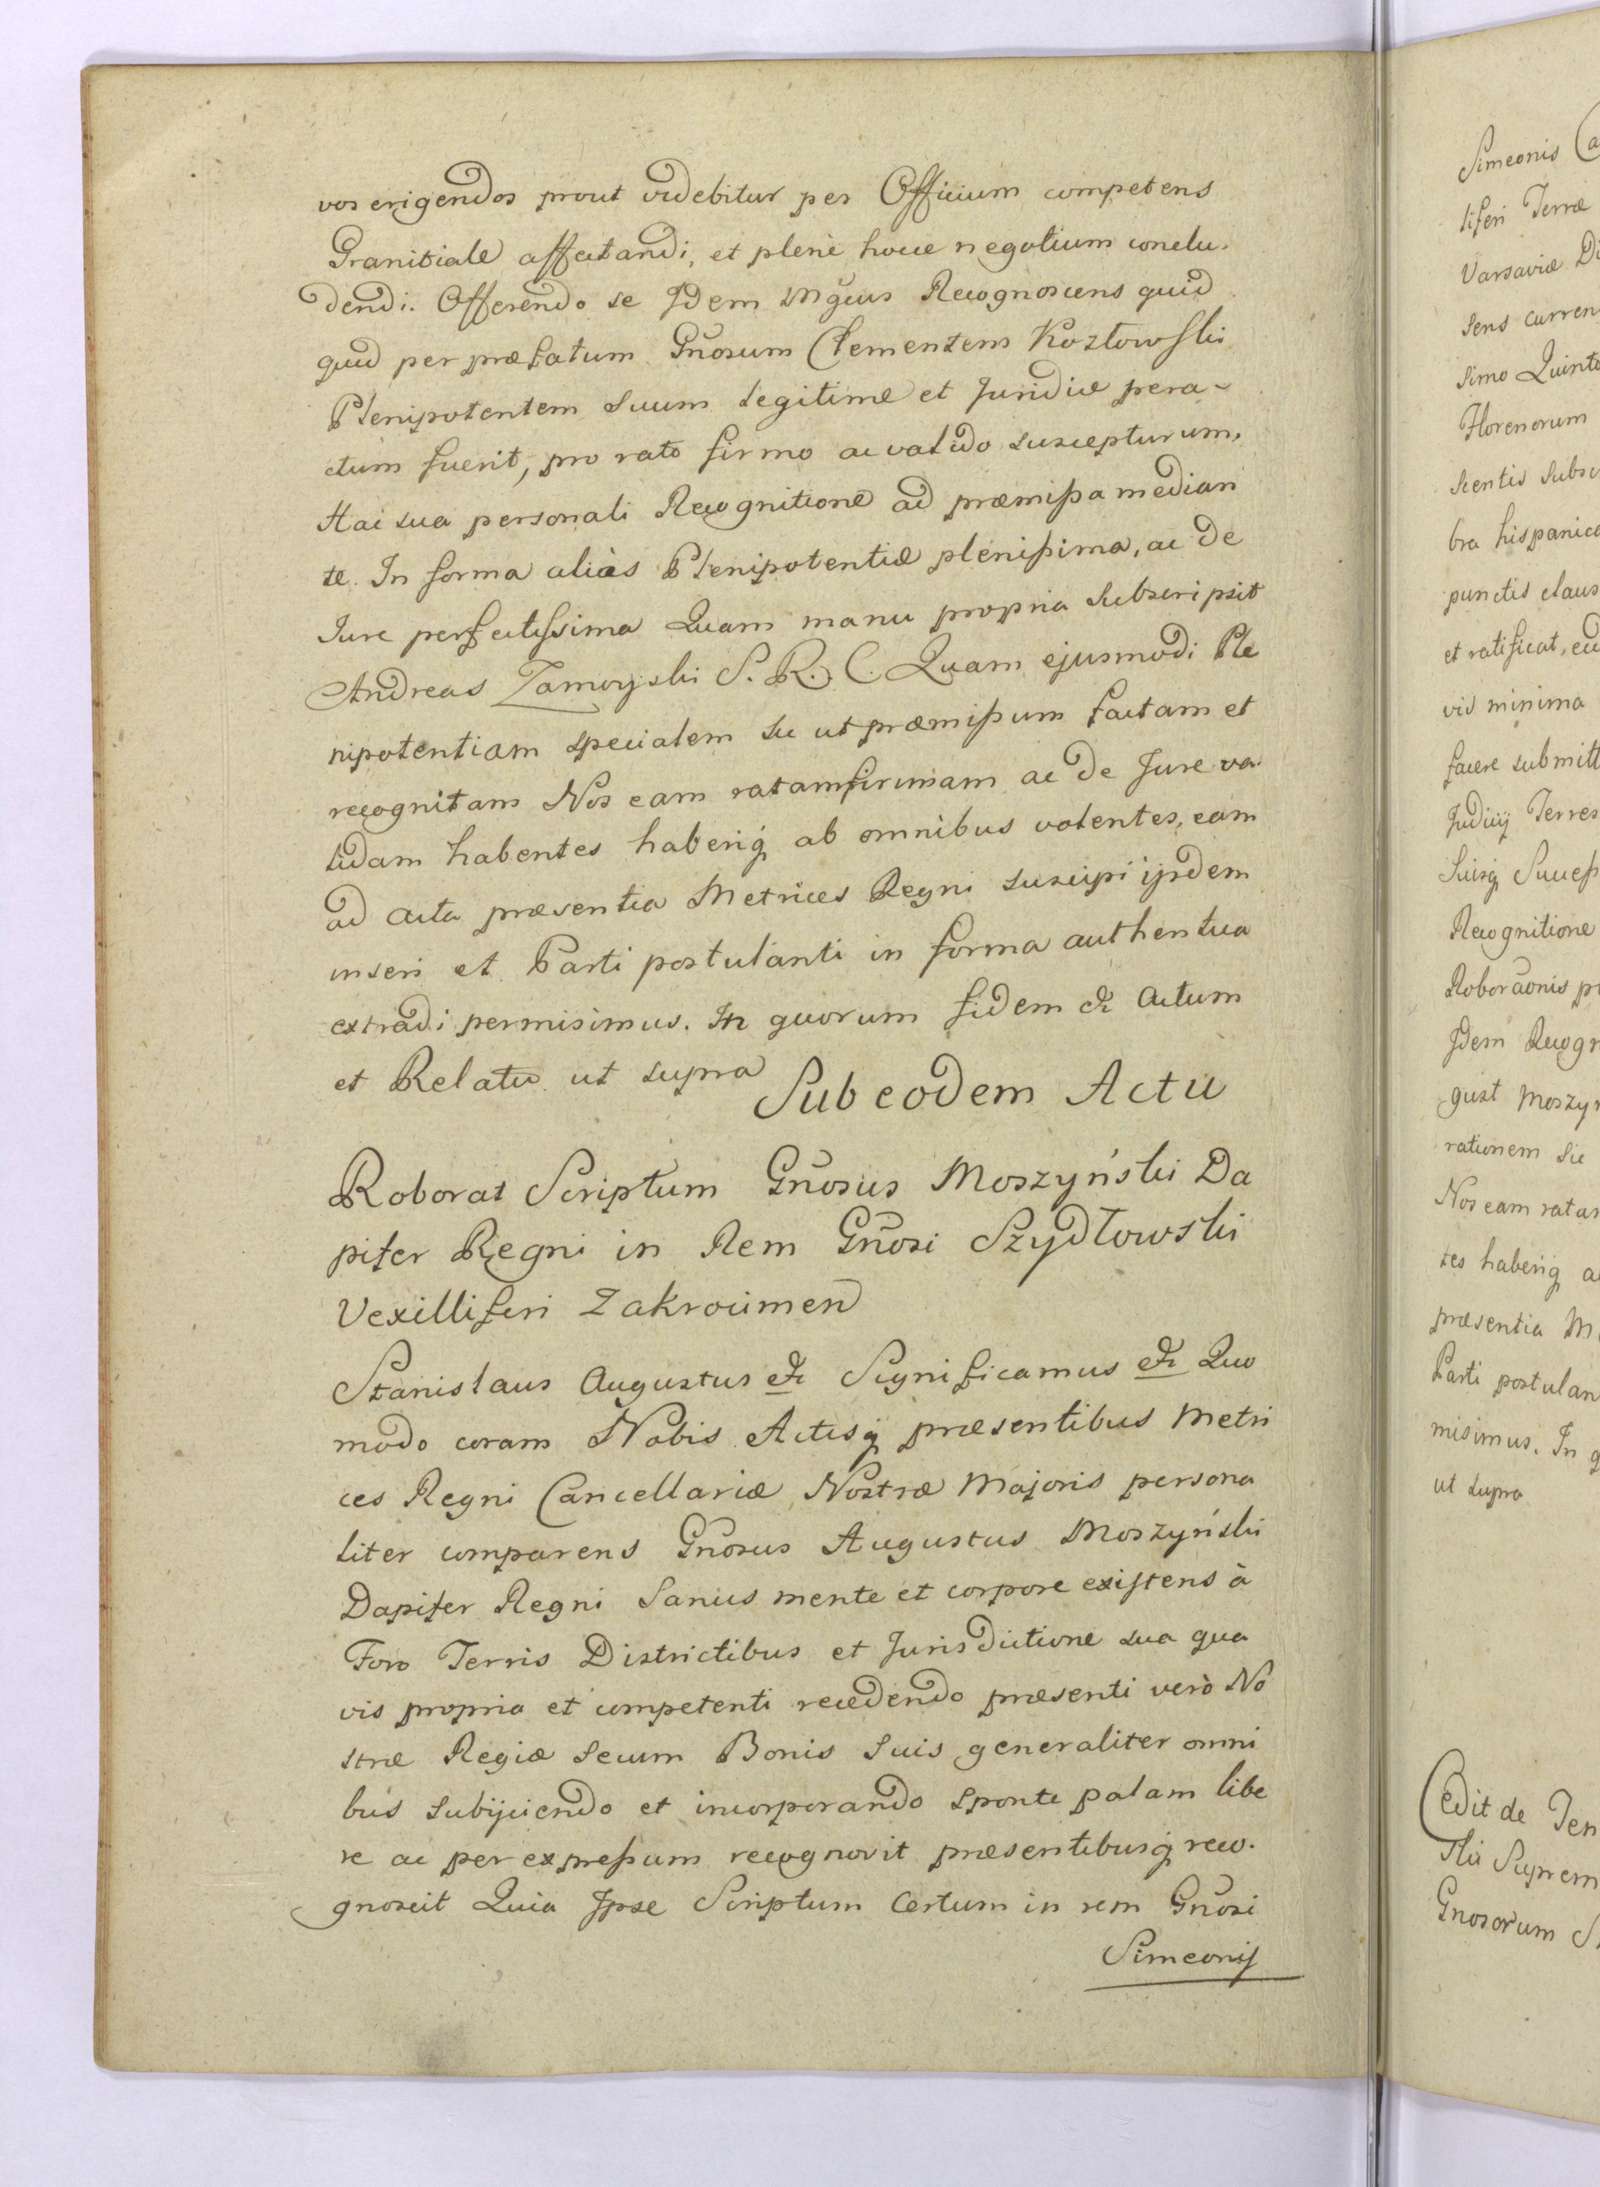 vos erigendos prout videbitur per Officium competens
Granitiale affectandi, et plenè hocce negotium conclu-
dendi. Offerendo se Idem Mgcus Recognoscens quid
quid per præfatum Gnosum Clementem Kozłowski
Plenipotentem suum legitime et Juridice pera-
ctum fuerit, pro rato firmo ac valido suscepturum,
Hac sua personali Recognitione ad præmissa median
te. In forma aliàs Plenipotentiæ plenissima, ac de
Iure perfectissima Quam manu propria subscripsit
Andreas Zamoyski S. R. C. Quam ejusmodi Ple
nipotentiam specialem sic ut præmissum factam et
recognitam Nos eam ratam firmam ac de Jure va
lidam habentes haberiq ab omnibus volentes, eam
ad acta præsentia Metrices Regni suscipi ijsdem
inseri et Parti postulanti in forma authentica
extradi permisimus. In quorum fidem &c Actum
et Relatu ut supra
Sub eodem Actu
Roborat Scriptum Gnosus Moszyński Da
pifer Regni in Rem Gnosi Szydłowski
Vexilliferi Zakrocimen
Stanislaus Augustus &c Significamus &c Quo
modo coram Nobis Actisq præsentibus Metri
ces Regni Cancellariæ Nostræ Majoris persona
liter comparens Gnosus Augustus Moszyński
Dapifer Regni Sanus mente et corpore existens à
Foro Terris Districtibus et Jurisdictione sua qua
vis propria et competenti recedendo præsenti verò No
stræ Regiæ secum Bonis suis generaliter omni
bus subijciendo et incorporando sponte palam libe
re ac per expressum recognovit præsentibusq reco-
gnoscit Quia Ipse Scriptum Certum in rem Gnosi
Simeonis
Simeonis
liferi Terræ
Varsaviæ
sens curren
simo Quinto
Florenorum
scentis subsc
bra hispanica
punctis claus
et ratificat,
vis minima
facere submitt
Judicij Terres
Suisq Success
Recognitione
Roboraonis
Idem Recogn
gust Moszyn
rationem sic
Nos eam ratam
tes haberiq
præsentia M
Parti postulan
misimus. In q
ut supra
Cedit de Ten
Suprem
Gnosorum